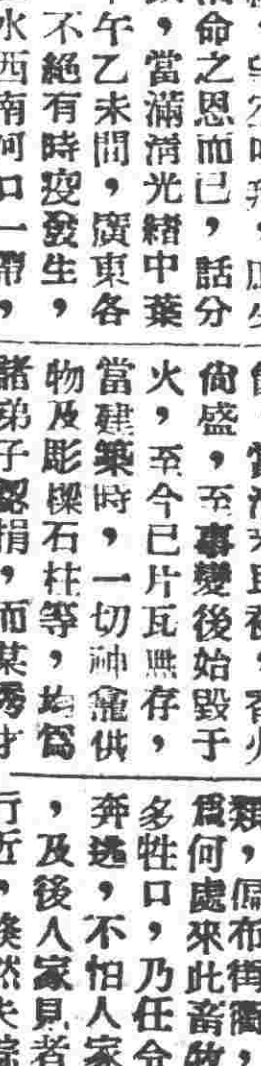 命之恩而已，話分
，當滿淸光緖中葉
午乙未間，廣東各
不絕有時疫發生，
水西南河口一帶，
尙盛，至事變後始毀于
火，至今已片瓦無存，
當建築時，一切神龕供
物及彫樑石柱等，均爲
諸弟子認捐，而某秀才
類，徧布街衢，
爲何處來此畜牧
多牲口，乃任令
奔逃，不怕人家
，及後人家見者
行近，